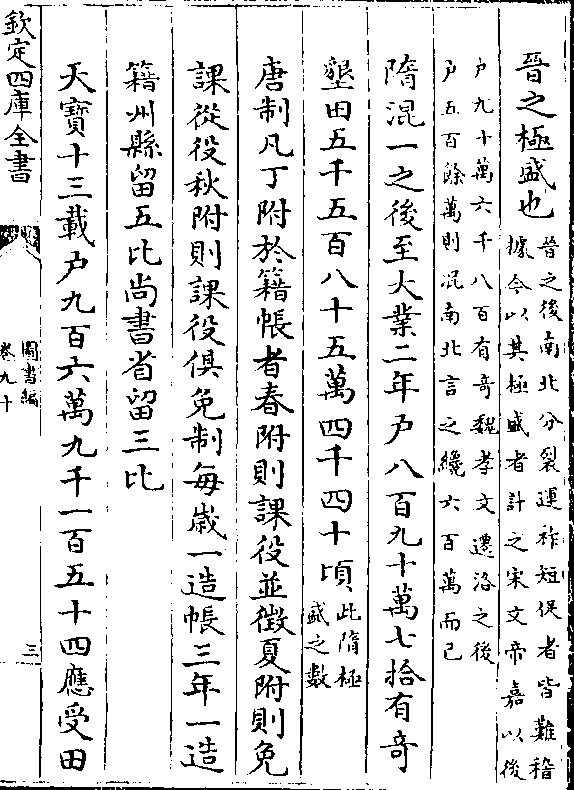 晉之極盛也
晉之後南北分裂運祚短促者皆難稽
據今以其極盛者計之宋文帝嘉以後
户九十萬六千八百有奇魏孝文遷洛之後
户五百餘萬則混南北言之纔六百萬而已
隋混一之後至大業二年户八百九十萬七拾有奇
墾田五千五百八十五萬四千四十頃
此隋極
盛之數
唐制凡丁附於籍帳者春附則課役並徵夏附則免
課從役秋附則課役俱免制每歲一造帳三年一造
籍州縣留五比尚書省留三比
天寶十三載户九百六萬九千一百五十四應受田
欽定四庫全書
圖書編
卷九十
三